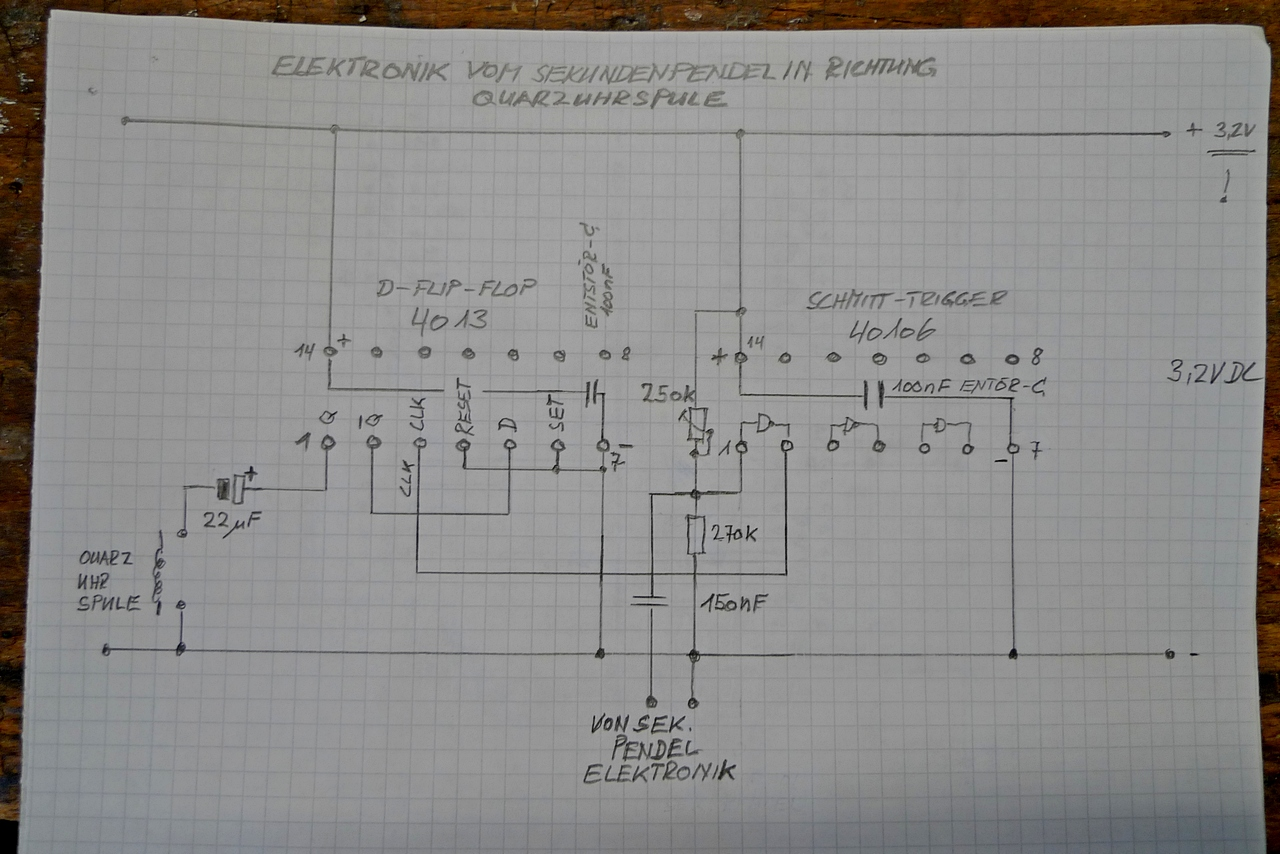 ELEKTRONIK VOM SEKUNDENPENDEL IN RICHTUNG
QUARZUHRSPULE
+ 3,2V
!
ENTSTÖR-C
100nF
D-FLIP-FLOP
4013
SCHMITT-TRIGGER
40106
14 +
8
+ 14
8
3,2V DC
250k
100nF ENTÖR-C
Q
Q̅
CLK
RESET
D
SET
1
7 -
1
- 7
CLK
+
22µF
270k
QUARZ
UHR
SPULE
150nF
-
VON SEK.
PENDEL
ELEKTRONIK